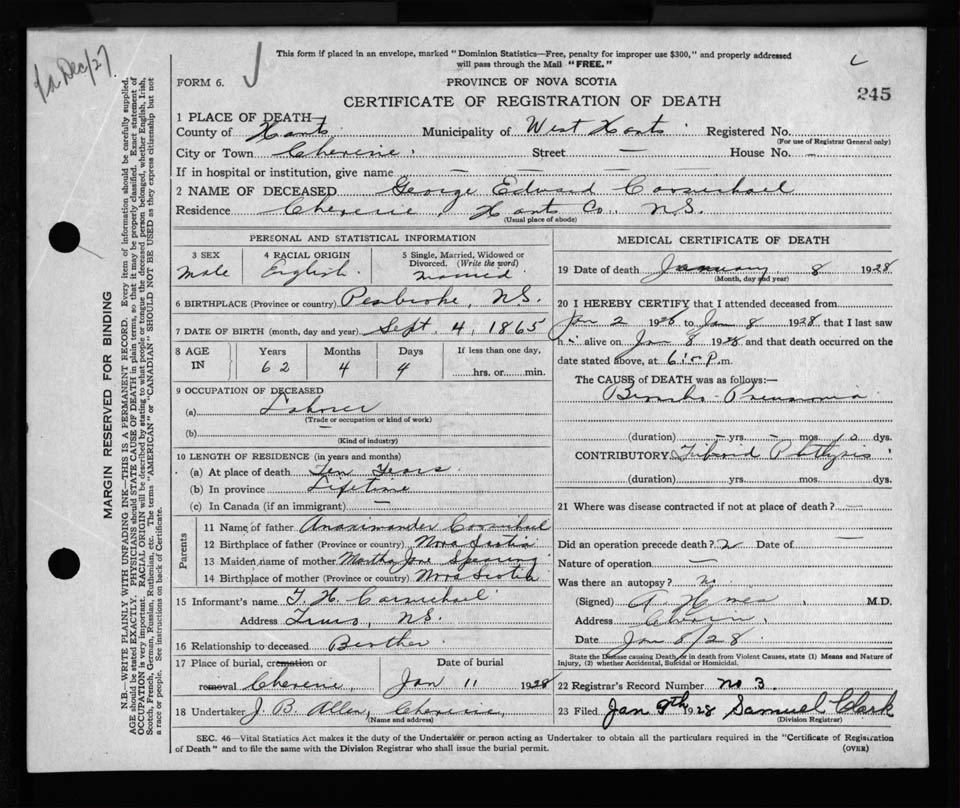 This form if placed in an envelope, marked "Dominion Statistics—Free, penalty for improper use $300," and properly addressed
will pass through the Mail "FREE."
FORM 6.
PROVINCE OF NOVA SCOTIA
245
CERTIFICATE OF REGISTRATION OF DEATH
1 PLACE OF DEATH—
County of Hants Municipality of West Hants Registered No.
(For use of Registrar General only)
City or Town Cheverie. Street — House No. -
If in hospital or institution, give name — — — — —
2 NAME OF DECEASED George Edward Carmichael
Residence Cheverie Hants Co. N.S.
(Usual place of abode)
PERSONAL AND STATISTICAL INFORMATION
3 SEX 4 RACIAL ORIGIN 5 Single, Married, Widowed or
Divorced. (Write the word)
Male English. married
6 BIRTHPLACE (Province or country) Pembroke, N.S.
7 DATE OF BIRTH (month, day and year) Sept. 4, 1865
8 AGE IN Years Months Days If less than one day,
62 4 4 hrs. or min.
9 OCCUPATION OF DECEASED
(a) Laborer
(Trade or occupation or kind of work)
(b) —
(Kind of industry)
10 LENGTH OF RESIDENCE (in years and months)
(a) At place of death Ten Years
(b) In province Lifetime
(c) In Canada (if an immigrant) —
Parents
11 Name of father Anaximander Carmichael
12 Birthplace of father (Province or country) Nova Scotia
13 Maiden name of mother Martha Jane
14 Birthplace of mother (Province or country) Nova Scotia
15 Informant's name T. H. Carmichael
Address Truro, N.S.
16 Relationship to deceased Brother
17 Place of burial, cremation or Date of burial
removal Cheverie, Jan 11 1928
18 Undertaker J. B. Allen, Cheverie,
(Name and address)
MEDICAL CERTIFICATE OF DEATH
19 Date of death January 8 1928
(Month, day and year)
20 I HEREBY CERTIFY that I attended deceased from
Jan 2 1928 to Jan 8 1928 that I last saw
h alive on Jan 8 1928 and that death occurred on the
date stated above, at P.m.
The CAUSE of DEATH was as follows:—
Broncho Pneumonia
(duration) - yrs. - mos. 10 dys.
CONTRIBUTORY. Fibroid Phthysis
(duration) yrs. mos. dys.
21 Where was disease contracted if not at place of death? —
Did an operation precede death? Date of —
Nature of operation —
Was there an autopsy? no
(Signed) M.D.
Address
Date Jan 8/28
State the Disease causing Death, or in death from Violent Causes, state (1) Means and Nature of
Injury, (2) whether Accidental, Suicidal or Homicidal.
22 Registrar's Record Number no 3.
23 Filed Jan 9th 1928 Samuel Clark
(Division Registrar)
SEC. 46—Vital Statistics Act makes it the duty of the Undertaker or person acting as Undertaker to obtain all the particulars required in the "Certificate of Registration
of Death" and to file the same with the Division Registrar who shall issue the burial permit.
(OVER)
MARGIN RESERVED FOR BINDING
N.B.—WRITE PLAINLY WITH UNFADING INK—THIS IS A PERMANENT RECORD. Every item of information should be carefully supplied.
AGE should be stated EXACTLY. PHYSICIANS should STATE CAUSE OF DEATH in plain terms, so that it may be properly classified. Exact statement of
OCCUPATION is very important. RACIAL ORIGIN will be described by stating to what people or tongue the deceased person belonged, whether English, Irish,
Scotch, French, German, Russian, Ruthenian, etc. The terms "AMERICAN" or "CANADIAN" SHOULD NOT BE USED as they express citizenship but not
a race or people. See instructions on back of Certificate.